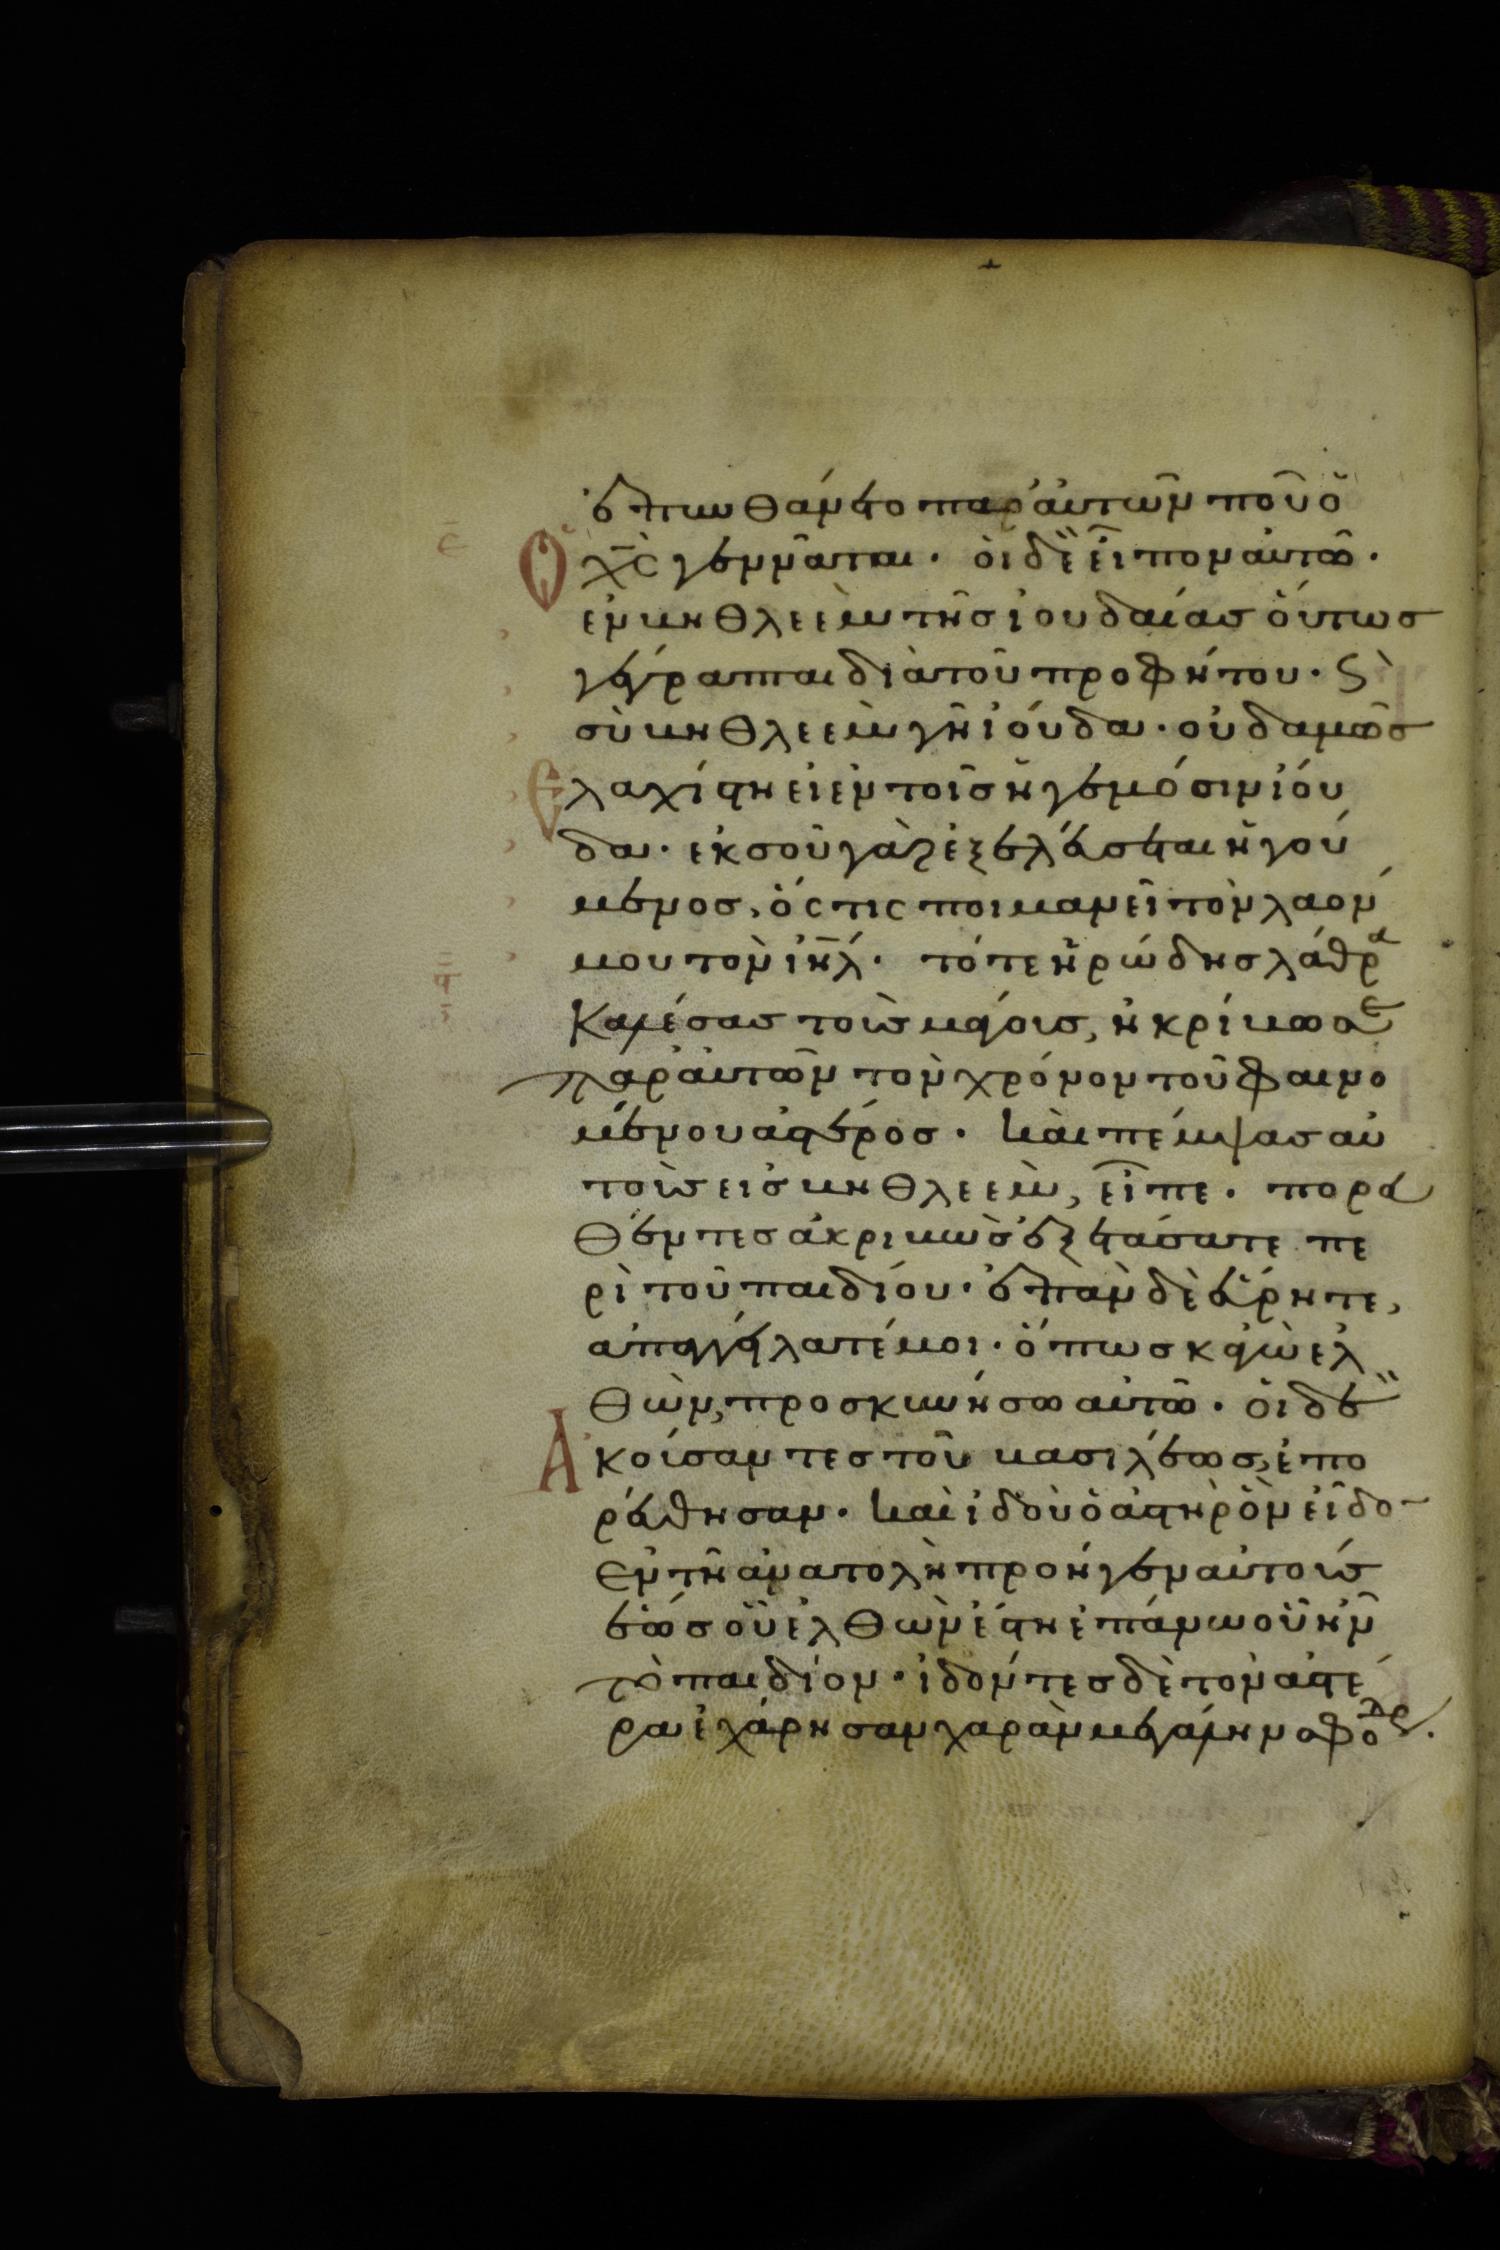 ἐπυνθάνετο παρ' αὐτῶν ποῦ ὁ
χ̅ς̅ γεννᾶται· οἱ δὲ εἶπον αὐτῶ·
ἐν βηθλεὲμ τῆς ἰουδαίας οὕτως
γέγραπται διὰ τοῦ προφήτου· ϛ̀
σὺ βηθλεὲμ γῆ ἰούδα· οὐδαμῶς
ἐλαχίστη εἶ ἐν τοῖς ἡγεμόσιν ἰού
δα· ἐκ σοῦ γὰρ ἐξελεύσεται ἡγού
μενος, ὅςτις ποιμανεῖ τὸν λαόν
μου τὸν ι̅η̅λ̅· τότε ἡρώδης λάθρα
καλέσας τοὺς μάγους, ἠκρίβωσε
παρ' αὐτῶν τὸν χρόνον τοῦ φαινο
μένου ἀστέρος· καὶ πέμψας αὐ
τοὺς εἰς βηθλεὲμ, εἶπε· πορευ
θέντες ἀκριβῶς ἐξετάσατε πε
ρὶ τοῦ παιδίου· ἐπὰν δὲ εὕρητε,
ἀπαγγείλατέ μοι· ὅπως κἀγὼ ἐλ
θὼν, προσκυνήσω αὐτῶ· οἱ δὲ
Ἀκούσαντες τοῦ βασιλέως, ἐπο
ρεύθησαν· καὶ ἰδοὺ ὁ ἀστὴρ ὃν εἶδο̅
ἐν τῆ ἀνατολῆ προῆγεν αὐτοὺς
ἕως οὗ ἐλθὼν ἔστη ἐπάνω οὗ ἦν
τὸ παιδίον· ἰδόντες δὲ τὸν ἀστέ
ρα ἐχάρησαν χαρὰν μεγάλην σφόδρ.
ε̅